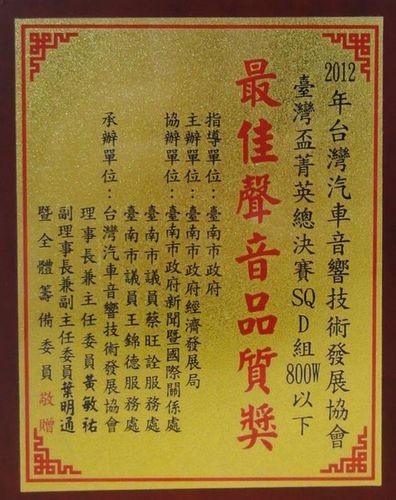 2012年台灣汽車音響技術發展協會
臺灣盃菁英總決賽SQD組800W以下
最佳聲音品質獎
指導單位：臺南市政府
主辦單位：臺南市政府經濟發展局
協辦單位：臺南市政府新聞暨國際關係處
臺南市議員蔡旺詮服務處
臺南市議員王錦德服務處
承辦單位：台灣汽車音響技術發展協會
理事長兼主任委員黃敏祐
副理事長兼副主任委員葉明通
暨全體籌備委員敬贈